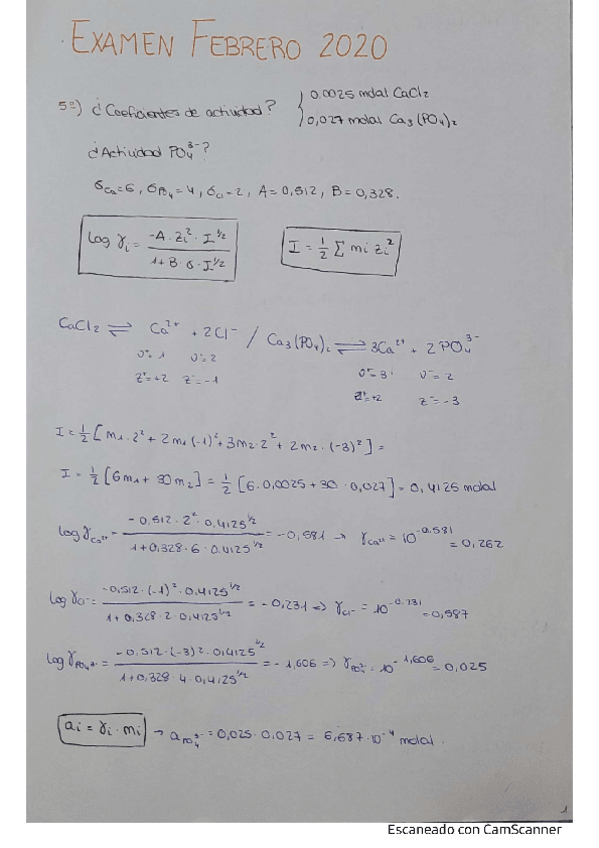 EXAMEN FEBRERO 2020
5º) ¿Coeficientes de actividad? { 0.0025 molal CaCl₂
0,027 molal Ca₃(PO₄)₂
¿Actividad PO₄³⁻?
σCa=6, σPO₄=4, σCl=2, A=0,512, B=0,328.
log γi = -A·Zi²·I^1/2 / 1+B·σ·I^1/2
I = 1/2 Σ mi zi²
CaCl₂ ⇌ Ca²⁺ + 2Cl⁻ / Ca₃(PO₄)₂ ⇌ 3Ca²⁺ + 2PO₄³⁻
υ⁺=1 υ⁻=2 υ⁺=3 υ⁻=2
z⁺=+2 z⁻=-1 z⁺=+2 z⁻=-3
I = 1/2 [m₁·2² + 2m₁(-1)² + 3m₂·2² + 2m₂·(-3)²] =
I = 1/2 [6m₁ + 30m₂] = 1/2 [6·0,0025 + 30·0,027] = 0,4125 molal
log γCa²⁺ = -0,512·2²·0,4125^1/2 / 1+0,328·6·0,4125^1/2 = -0,581 → γCa²⁺ = 10^-0,581 = 0,262
log γCl⁻ = -0,512·(-1)²·0,4125^1/2 / 1+0,328·2·0,4125^1/2 = -0,231 ⇒ γCl⁻ = 10^-0,231 = 0,587
log γPO₄³⁻ = -0,512·(-3)²·0,4125^1/2 / 1+0,328·4·0,4125^1/2 = -1,606 ⇒ γPO₄³⁻ = 10^-1,606 = 0,025
ai = γi·mi → aPO₄³⁻ = 0,025·0,027 = 6,687·10⁻⁴ molal.
1
Escaneado con CamScanner